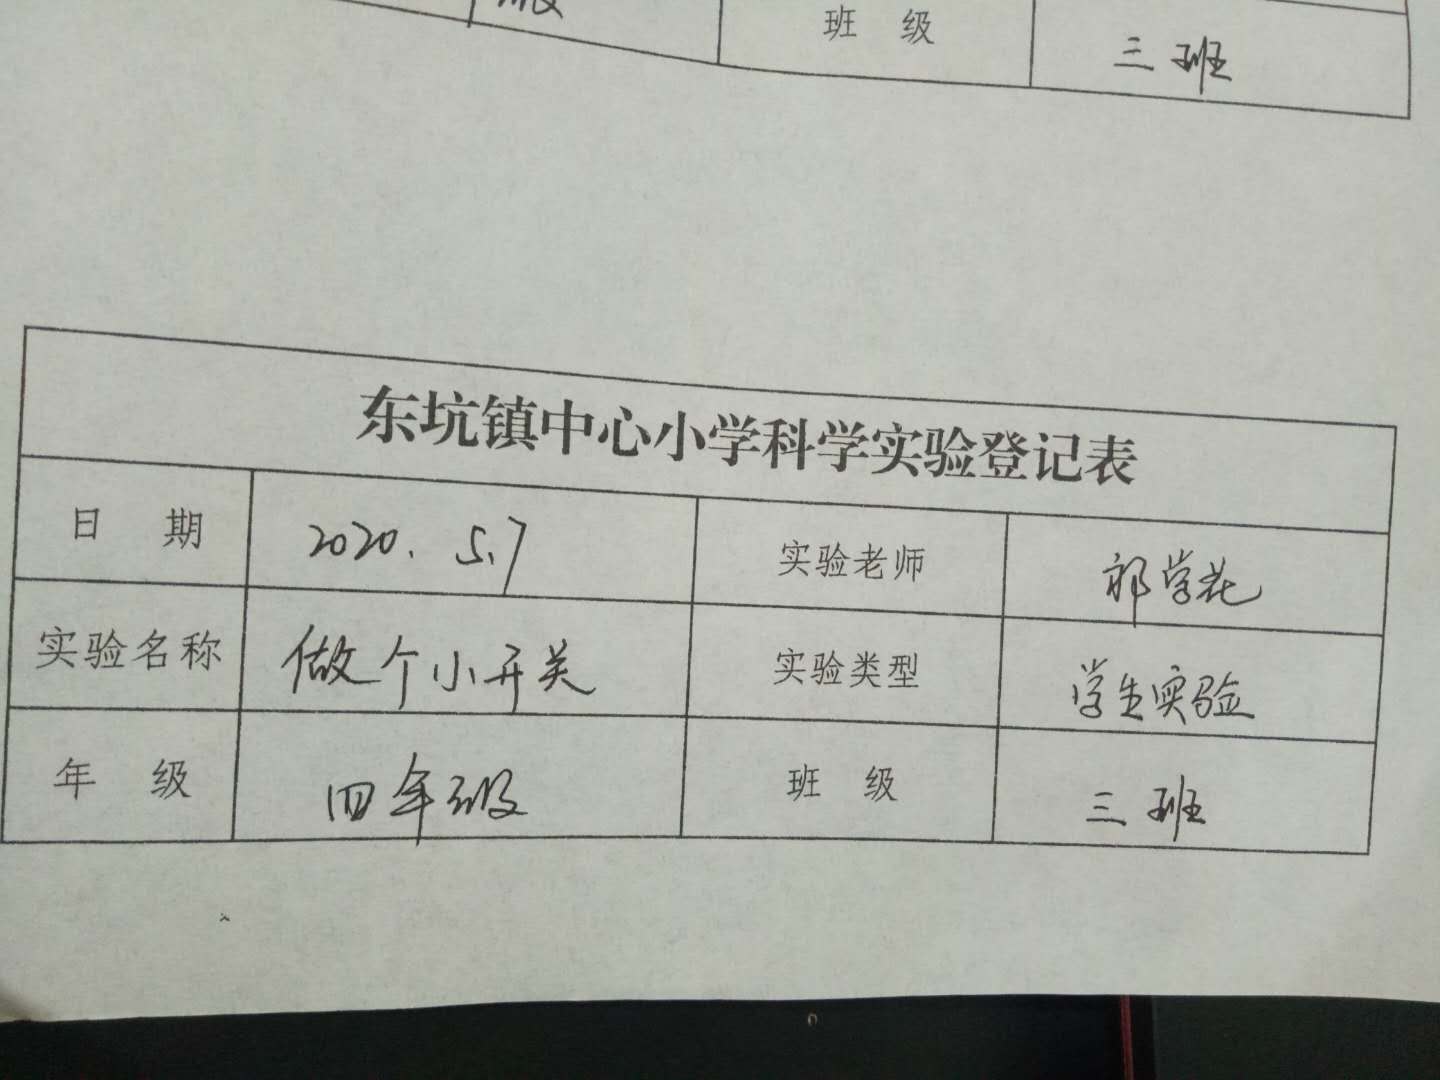 级
班 级
三班
东坑镇中心小学科学实验登记表
日 期 2020.5.7 实验老师 祁学花
实验名称 做个小开关 实验类型 学生实验
年 级 四年级 班 级 三班